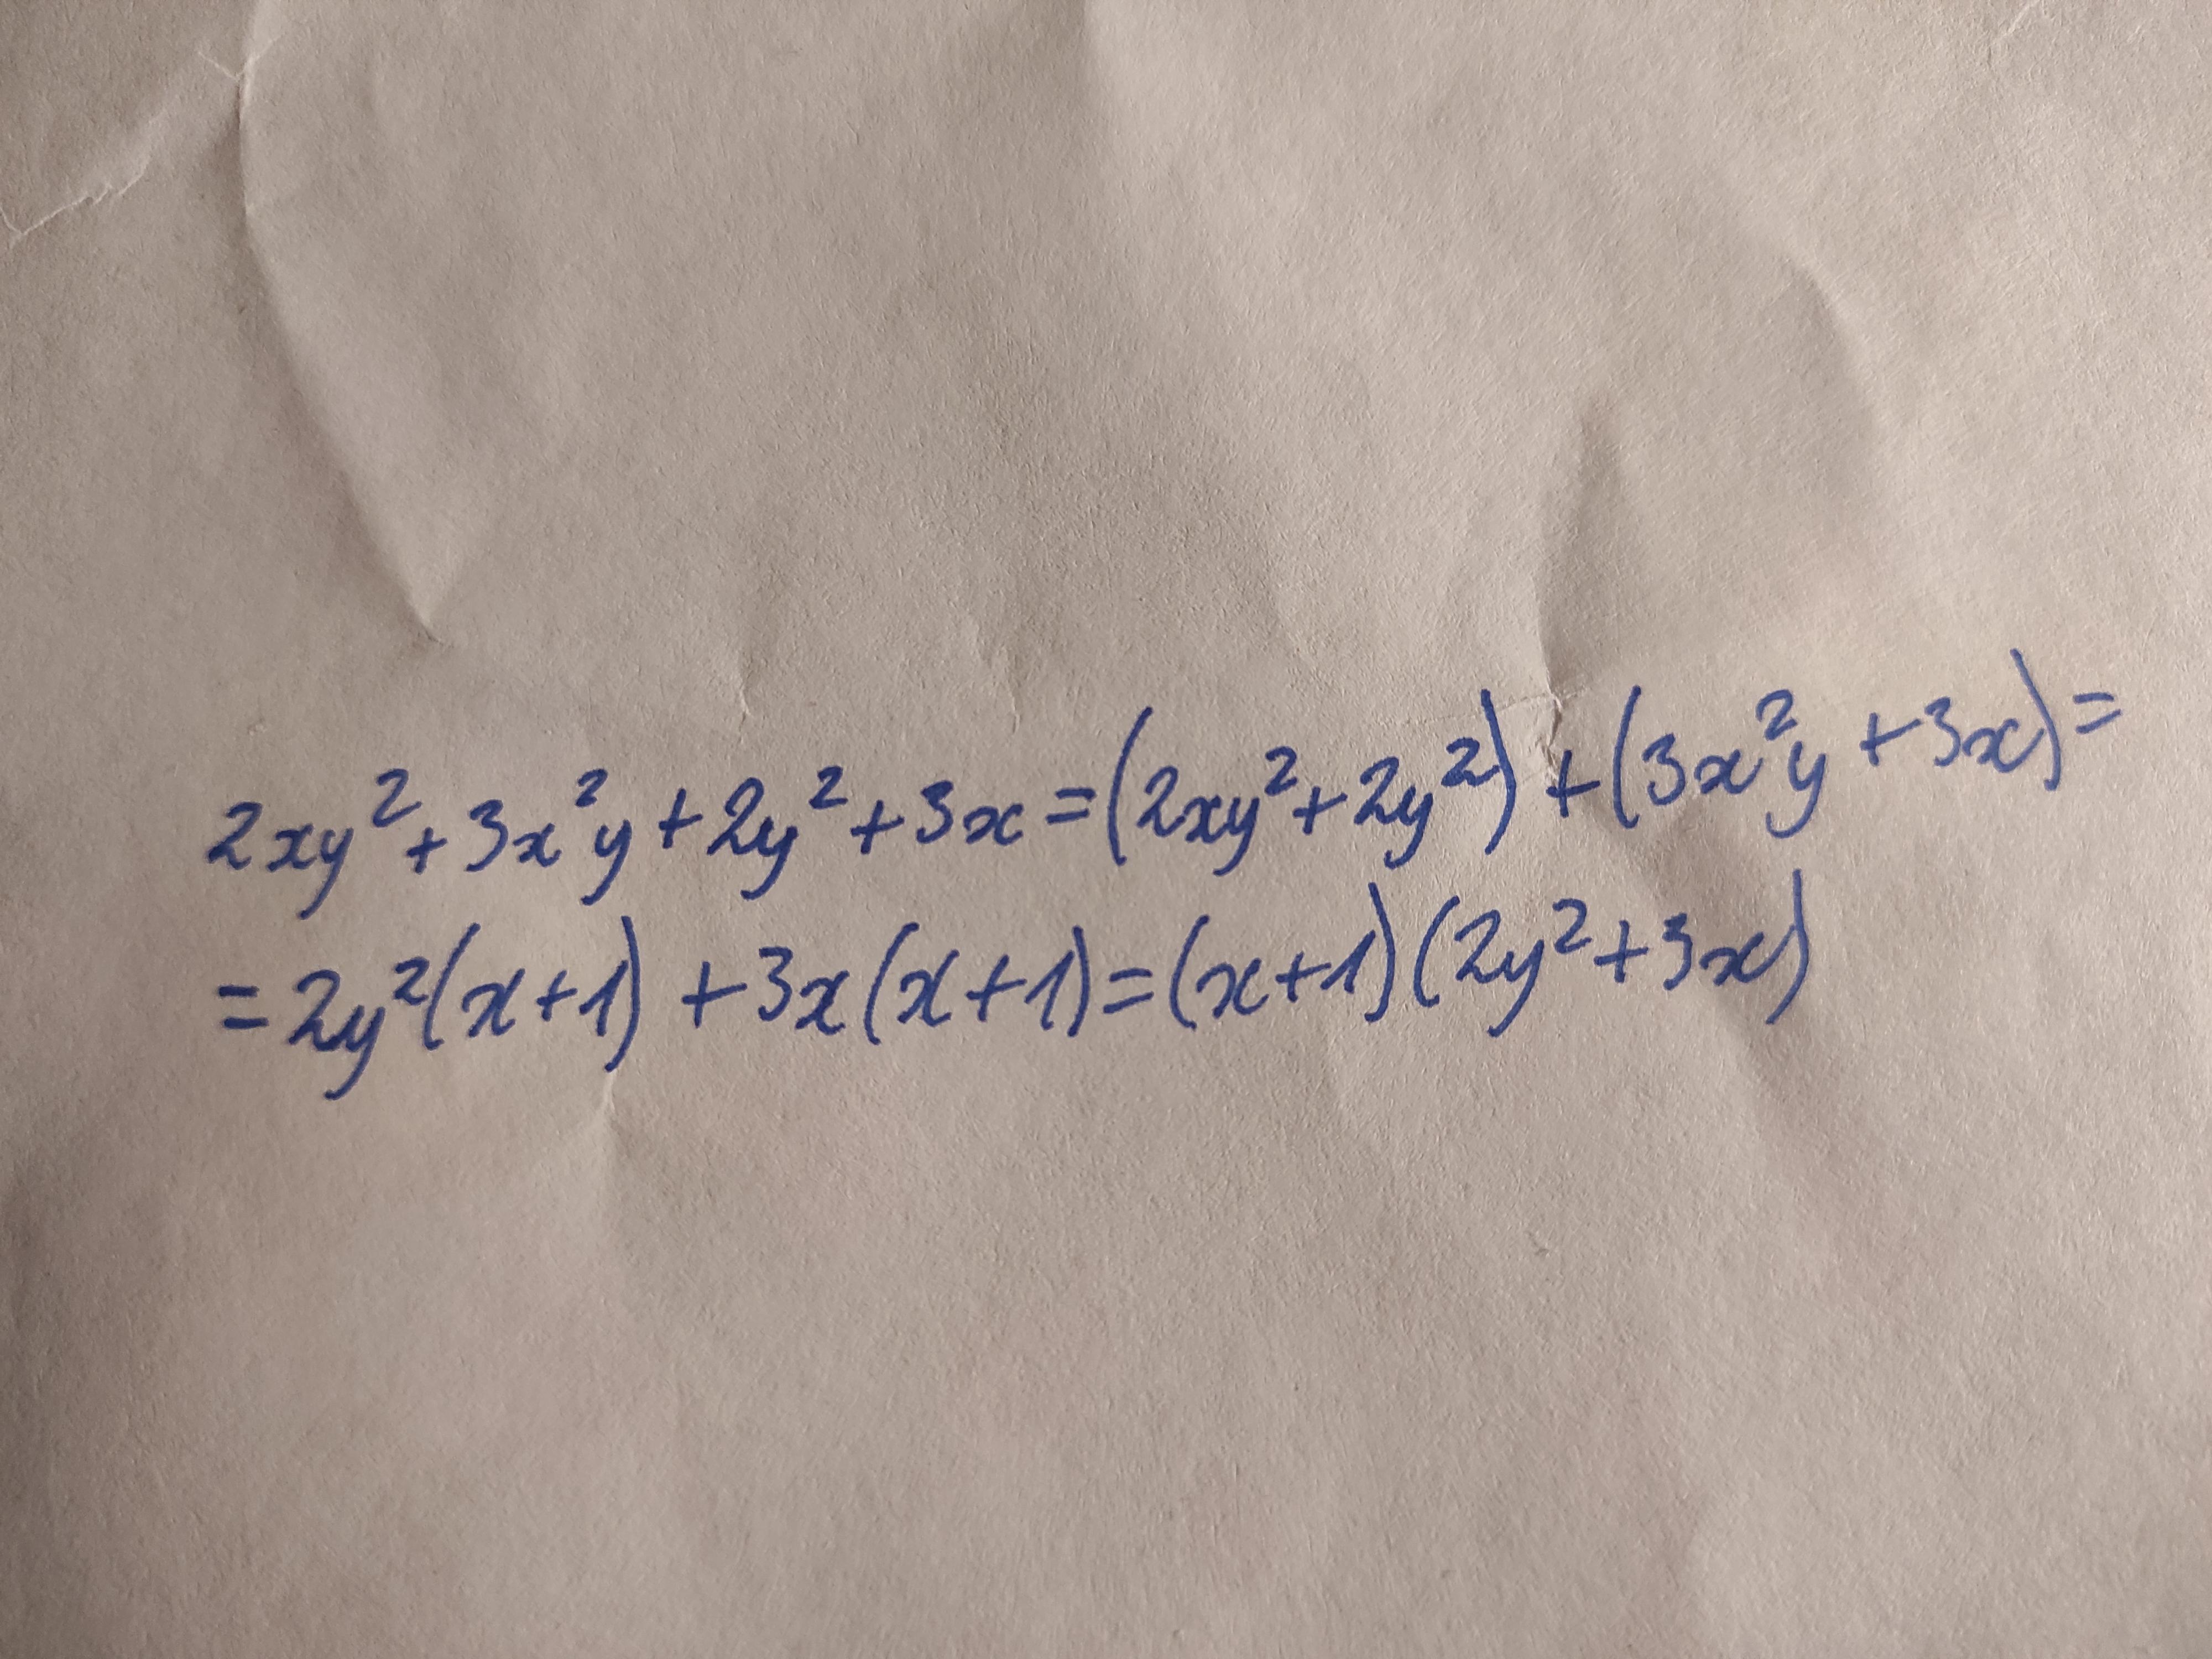 2xy²+3x²y+2y²+3x=(2xy²+2y²)+(3x²y+3x)=
=2y²(x+1)+3x(x+1)=(x+1)(2y²+3x)